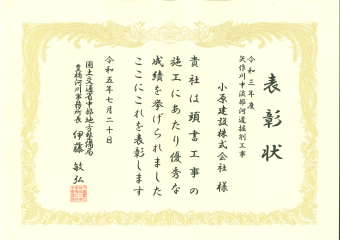 表彰状
令和三年度
矢作川中流部河道掘削工事
小原建設株式会社 様
貴社は頭書工事の
施工にあたり優秀な
成績を挙げられました
ここにこれを表彰します
令和五年七月二十日
国土交通省中部地方整備局
豊橋河川事務所長 伊藤 敏弘